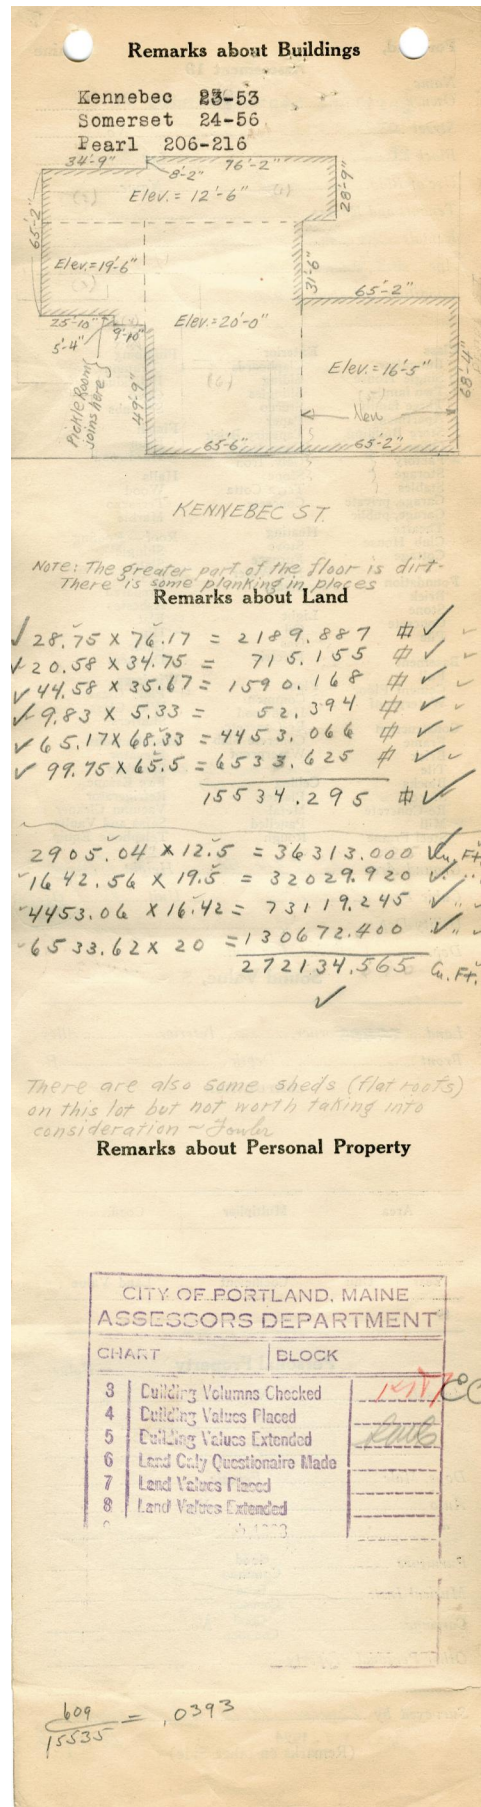 Remarks about Buildings
Kennebec 23-53
Somerset 24-56
Pearl 206-216
34'-9"
8'-2"
76'-2"
28'-9"
Elev. = 12'-6"
65'-2"
Elev. = 19'-6"
31'-6"
65'-2"
25'-10"
9'-10"
5'-4"
Elev. = 20'-0"
Elev. = 16'-5"
68'-4"
Pickle Room
joins here
49'-9"
New
65'-6"
65'-2"
KENNEBEC ST.
NOTE: The greater part of the floor is dirt-
There is some planking in places
Remarks about Land
28.75 x 76.17 = 2189.887
20.58 x 34.75 = 715.155
44.58 x 35.67 = 1590.168
9.83 x 5.33 = 52.394
65.17 x 68.33 = 4453.066
99.75 x 65.5 = 6533.625
15534.295
2905.04 x 12.5 = 36313.000 Cu. Ft.
1642.56 x 19.5 = 32029.920 " "
4453.06 x 16.42 = 73119.245 " "
6533.62 x 20 = 130672.400 " "
272134.565 Cu. Ft.
There are also some sheds (flat roofs)
on this lot but not worth taking into
consideration - Fowler
Remarks about Personal Property
CITY OF PORTLAND, MAINE
ASSESSORS DEPARTMENT
CHART BLOCK
3 Building Volumns Checked
4 Building Values Placed
5 Building Values Extended
6 Land Only Questionaire Made
7 Land Values Placed
8 Land Values Extended
609
15535 = .0393